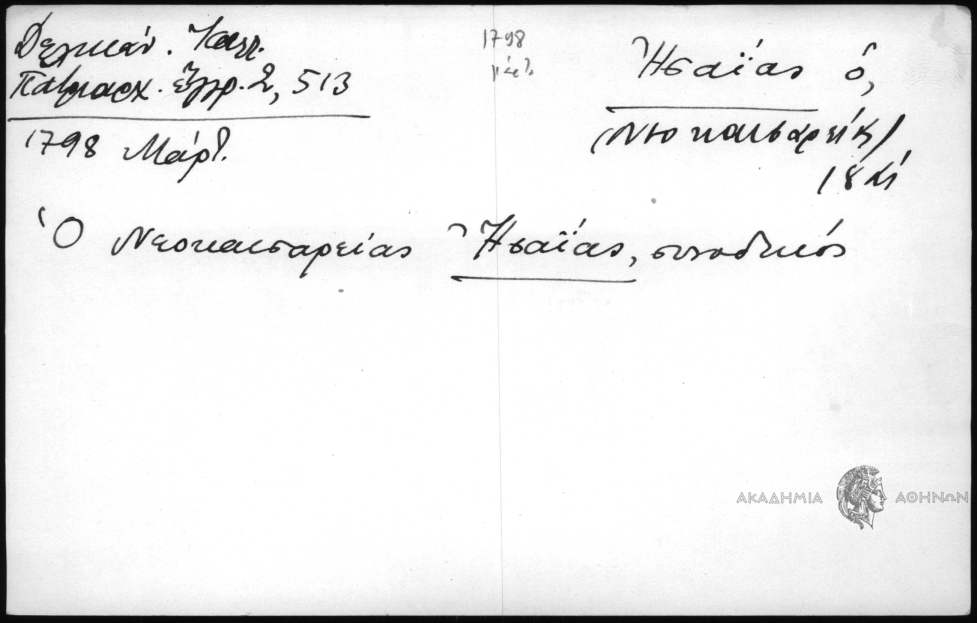 Δελικάν. Καλλ.
Πατριαρχ. ἔγγρ. 2, 513
1798 Μάρτ.
1798
Μάρτ.
Ἠσαΐας ὁ,
(Νεοκαισαρείας)
Ὁ Νεοκαισαρείας Ἠσαΐας, συνοδικός
ΑΚΑΔΗΜΙΑ ΑΘΗΝΩΝ